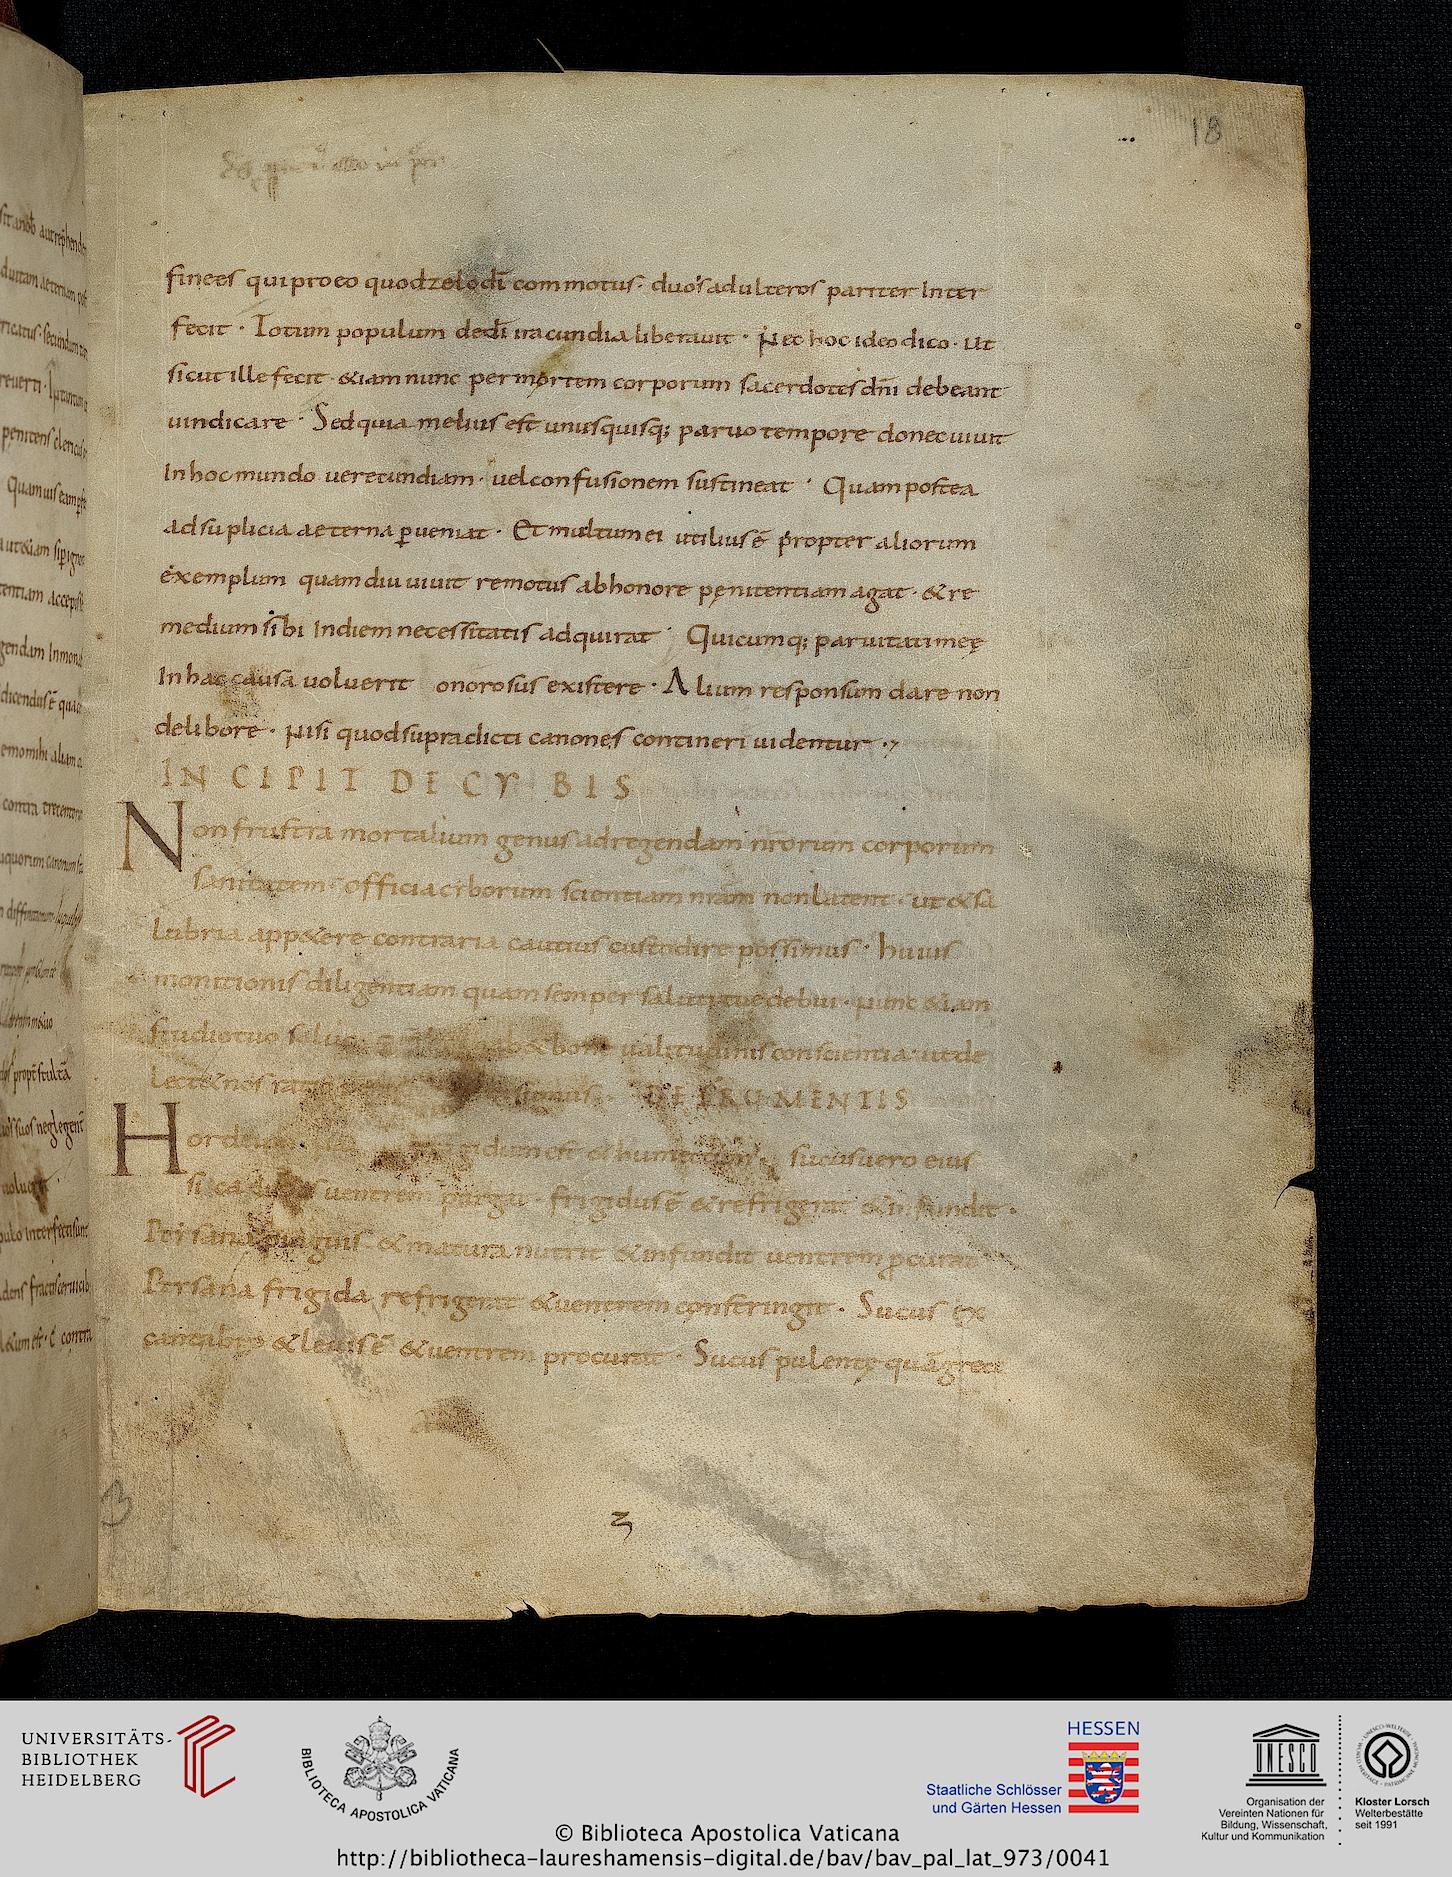 18
finees qui pro eo quod zelo dī commotus· duos adulteros pariter Inter
fecit · Totum populum de dī iracundia liberauit · Nec hoc ideo dico · Ut
sicut ille fecit · &iam nunc per mortem corporum sacerdotes dn̄i debeant
uindicare · Sed quia melius est unusquisq; paruo tempore donec uiuit
In hoc mundo uerecundiam · uel confusionem sustineat · Quam postea
ad suplicia aeterna ꝑueniat · Et multum ei utilius ē propter aliorum
exemplum quamdiu uiuit remotus ab honore penitentiam agat · & re
medium sibi In diem necessitatis adquirat · Quicumq; paruitati meę
In hac causa uoluerit onorosus existere · Alium responsum dare non
delibore · Nisi quod supradicti canones contineri uidentur
INCIPIT DE CYBIS
Non frustra mortalium genus ad regendam nr̄orum corporum
sanitatem officia ciborum scientiam nram non latent · ut & sa
lubria app&ere contraria cautius custodire possimus · huius
monitionis diligentiam quam semper saluti tue debui · Nunc &iam
studio tuo ualitudinis conscientia ut de
lect& nos DE FRUMENTIS
Hordeum est & humectum sucus uero eius
uentrem purgat · frigidus ē & refrigerat & infundit ·
Persana pinguis & matura nutrit & infundit uentrem ꝓcurat
Persana frigida refrigerat & uentrem constringit · Sucus ex
cantabro & leuis ē & uentrem procurat · Sucus pulentę quā greci
3
UNIVERSITÄTS-
BIBLIOTHEK
HEIDELBERG
BIBLIOTECA APOSTOLICA VATICANA
HESSEN
Staatliche Schlösser
und Gärten Hessen
UNESCO
Organisation der
Vereinten Nationen für
Bildung, Wissenschaft,
Kultur und Kommunikation
Kloster Lorsch
Welterbestätte
seit 1991
© Biblioteca Apostolica Vaticana
http://bibliotheca-laureshamensis-digital.de/bav/bav_pal_lat_973/0041